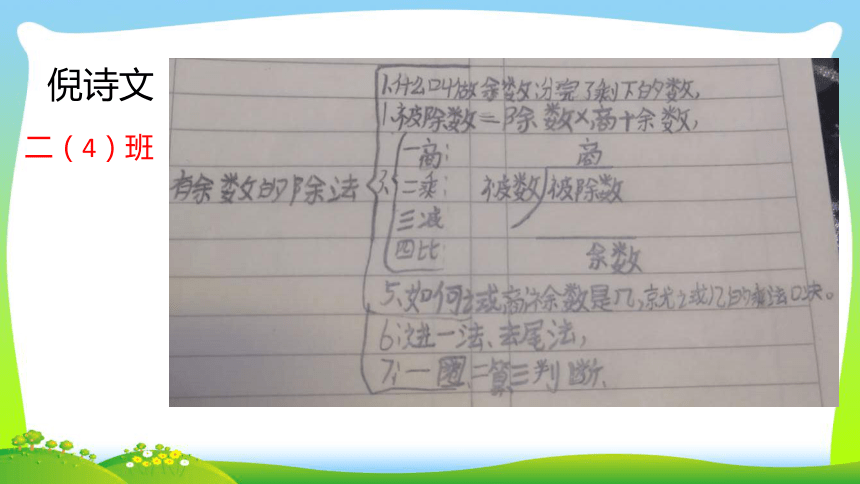 倪诗文
二（4）班
有余数的除法
1、什么叫做余数:分完了剩下的数,
1、被除数=除数×商+余数,
3、
一商: 商
二乘: 被数 被除数
三减
四比 余数
5、如何求商:余数是几,就之或几的乘法口决。
6:进一法、去尾法,
7:一圈、二算三判断、